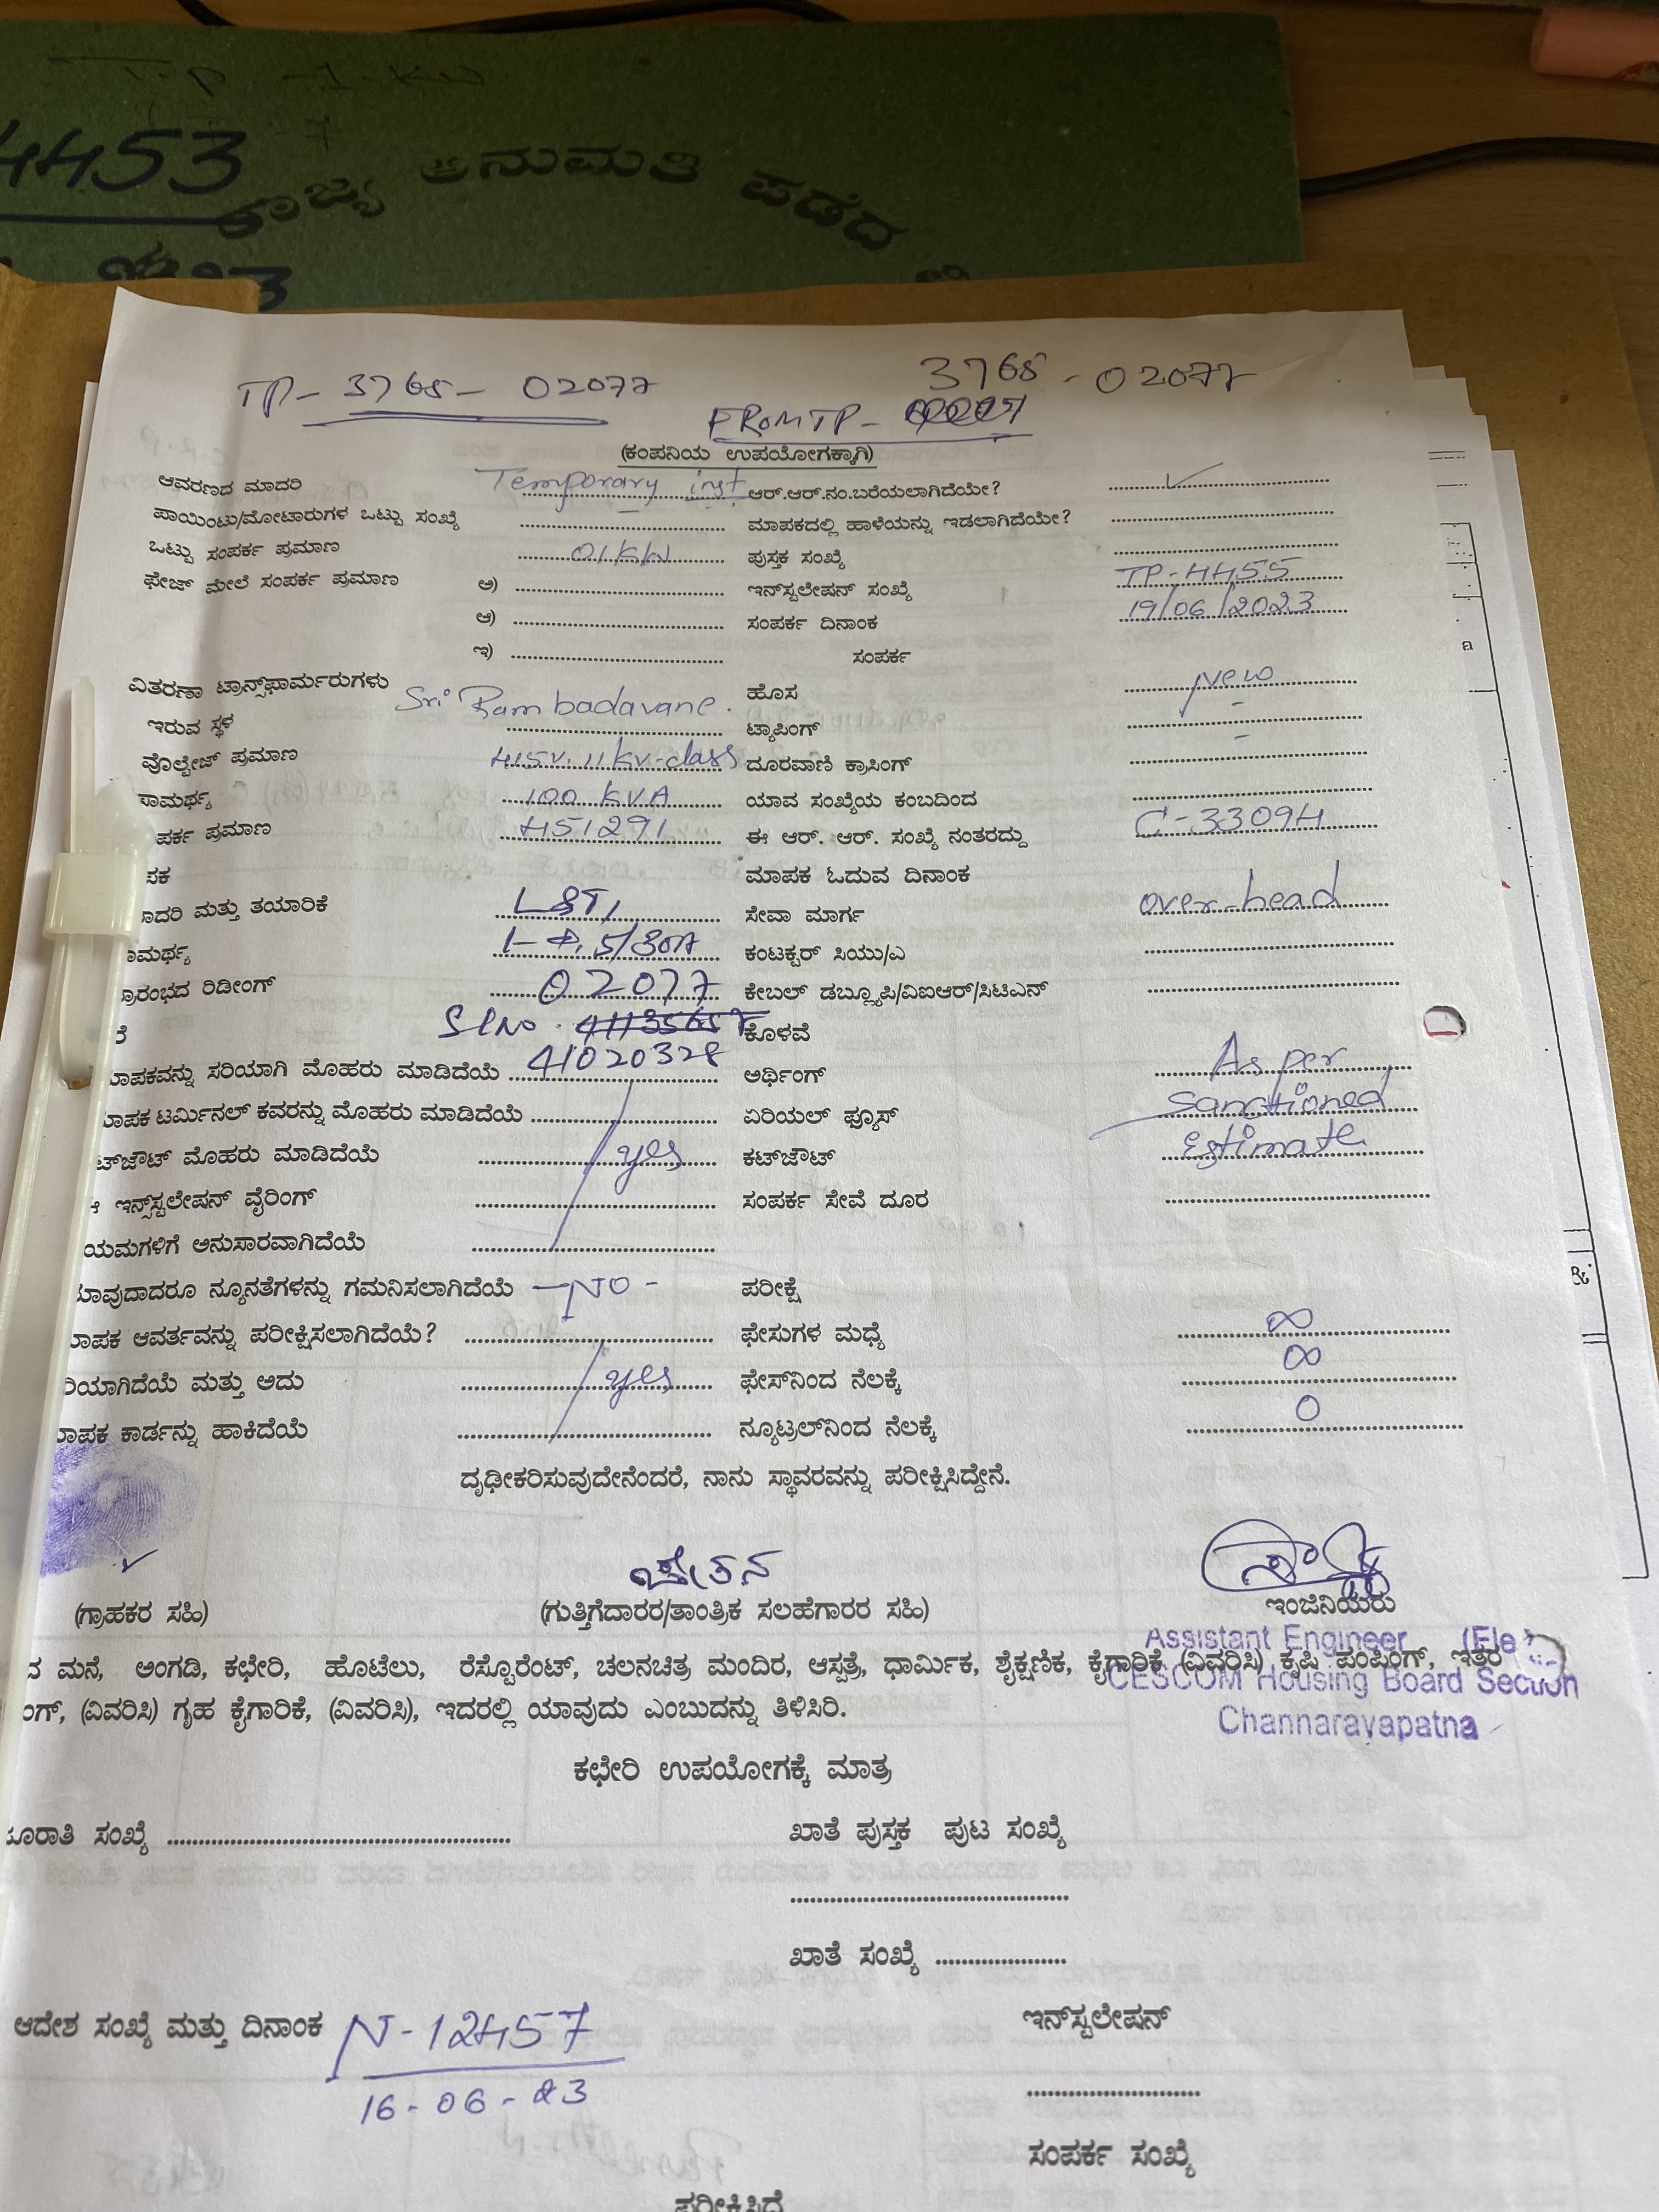 4453
ರಾಜ್ಯ ಅನುಮತಿ ಪಡೆದ
TP - 3768 - 02077
3768 - 02077
FROMTP -
(ಕಂಪನಿಯ ಉಪಯೋಗಕ್ಕಾಗಿ)
ಆವರಣದ ಮಾದರಿ Temporary inst ಆರ್.ಆರ್.ನಂ.ಬರೆಯಲಾಗಿದೆಯೇ? ✓
ಪಾಯಿಂಟು/ಮೋಟಾರುಗಳ ಒಟ್ಟು ಸಂಖ್ಯೆ ಮಾಪಕದಲ್ಲಿ ಹಾಳೆಯನ್ನು ಇಡಲಾಗಿದೆಯೇ?
ಒಟ್ಟು ಸಂಪರ್ಕ ಪ್ರಮಾಣ 01 KW ಪುಸ್ತಕ ಸಂಖ್ಯೆ
ಫೇಜ್ ಮೇಲೆ ಸಂಪರ್ಕ ಪ್ರಮಾಣ ಅ) ಇನ್‌ಸ್ಟಲೇಷನ್ ಸಂಖ್ಯೆ TP-4455
ಆ) ಸಂಪರ್ಕ ದಿನಾಂಕ 19/06/2023
ಇ) ಸಂಪರ್ಕ
ವಿತರಣಾ ಟ್ರಾನ್ಸ್‌ಫಾರ್ಮರುಗಳು Sri Ram badavane. ಹೊಸ New
ಇರುವ ಸ್ಥಳ ಟ್ಯಾಪಿಂಗ್ -
ವೊಲ್ಟೇಜ್ ಪ್ರಮಾಣ 415V. 11 KV-class ದೂರವಾಣಿ ಕ್ರಾಸಿಂಗ್ -
ಸಾಮರ್ಥ್ಯ 100 KVA ಯಾವ ಸಂಖ್ಯೆಯ ಕಂಬದಿಂದ
ಪರ್ಕ ಪ್ರಮಾಣ 451291 ಈ ಆರ್. ಆರ್. ಸಂಖ್ಯೆ ನಂತರದ್ದು C-33094
ಪಕ ಮಾಪಕ ಓದುವ ದಿನಾಂಕ
ಾದರಿ ಮತ್ತು ತಯಾರಿಕೆ L&T, ಸೇವಾ ಮಾರ್ಗ over-head
ಾಮರ್ಥ್ಯ 1-Φ, 5/30A ಕಂಟಕ್ಟರ್ ಸಿಯು/ಎ
್ರಾರಂಭದ ರಿಡೀಂಗ್ 02077 ಕೇಬಲ್ ಡಬ್ಲ್ಯೂಪಿ/ವಿಐಆರ್/ಸಿಟಿಎನ್
ೆ Sl No. ಕೊಳವೆ
ಾಪಕವನ್ನು ಸರಿಯಾಗಿ ಮೊಹರು ಮಾಡಿದೆಯೆ 41020328 ಅರ್ಥಿಂಗ್ As per
ಾಪಕ ಟರ್ಮಿನಲ್ ಕವರನ್ನು ಮೊಹರು ಮಾಡಿದೆಯೆ ಏರಿಯಲ್ ಫ್ಯೂಸ್ Sanctioned
ಟ್‌ಜೌಟ್ ಮೊಹರು ಮಾಡಿದೆಯೆ yes ಕಟ್‌ಜೌಟ್ Estimate
ಇನ್ಸ್‌ಸ್ಟಲೇಷನ್ ವೈರಿಂಗ್ ಸಂಪರ್ಕ ಸೇವೆ ದೂರ
ಯಮಗಳಿಗೆ ಅನುಸಾರವಾಗಿದೆಯೆ
ಾವುದಾದರೂ ನ್ಯೂನತೆಗಳನ್ನು ಗಮನಿಸಲಾಗಿದೆಯೆ -NO- ಪರೀಕ್ಷೆ
ಾಪಕ ಆವರ್ತವನ್ನು ಪರೀಕ್ಷಿಸಲಾಗಿದೆಯೆ? ಫೇಸುಗಳ ಮಧ್ಯೆ ∞
ರಿಯಾಗಿದೆಯೆ ಮತ್ತು ಅದು yes ಫೇಸ್‌ನಿಂದ ನೆಲಕ್ಕೆ ∞
ಾಪಕ ಕಾರ್ಡನ್ನು ಹಾಕಿದೆಯೆ ನ್ಯೂಟ್ರಲ್‌ನಿಂದ ನೆಲಕ್ಕೆ 0
ದೃಢೀಕರಿಸುವುದೇನೆಂದರೆ, ನಾನು ಸ್ಥಾವರವನ್ನು ಪರೀಕ್ಷಿಸಿದ್ದೇನೆ.
ಚೇತನ
(ಗ್ರಾಹಕರ ಸಹಿ) (ಗುತ್ತಿಗೆದಾರರ/ತಾಂತ್ರಿಕ ಸಲಹೆಗಾರರ ಸಹಿ) ಇಂಜಿನಿಯರು
Assistant Engineer (Ele)
ನ ಮನೆ, ಅಂಗಡಿ, ಕಛೇರಿ, ಹೊಟೆಲು, ರೆಸ್ಟೊರೆಂಟ್, ಚಲನಚಿತ್ರ ಮಂದಿರ, ಆಸ್ಪತ್ರೆ, ಧಾರ್ಮಿಕ, ಶೈಕ್ಷಣಿಕ, ಕೈಗಾರಿಕೆ (ವಿವರಿಸಿ) ಕೃಷಿ ಪಂಪಿಂಗ್, ಇತರ
CESCOM Housing Board Section
ಂಗ್, (ವಿವರಿಸಿ) ಗೃಹ ಕೈಗಾರಿಕೆ, (ವಿವರಿಸಿ), ಇದರಲ್ಲಿ ಯಾವುದು ಎಂಬುದನ್ನು ತಿಳಿಸಿರಿ.
Channarayapatna
ಕಛೇರಿ ಉಪಯೋಗಕ್ಕೆ ಮಾತ್ರ
ೂರಾತಿ ಸಂಖ್ಯೆ ಖಾತೆ ಪುಸ್ತಕ ಪುಟ ಸಂಖ್ಯೆ
ಖಾತೆ ಸಂಖ್ಯೆ
ಆದೇಶ ಸಂಖ್ಯೆ ಮತ್ತು ದಿನಾಂಕ N-12457 ಇನ್‌ಸ್ಟಲೇಷನ್
16-06-23
ಸಂಪರ್ಕ ಸಂಖ್ಯೆ
ಪರೀಕ್ಷಿಸಿದೆ